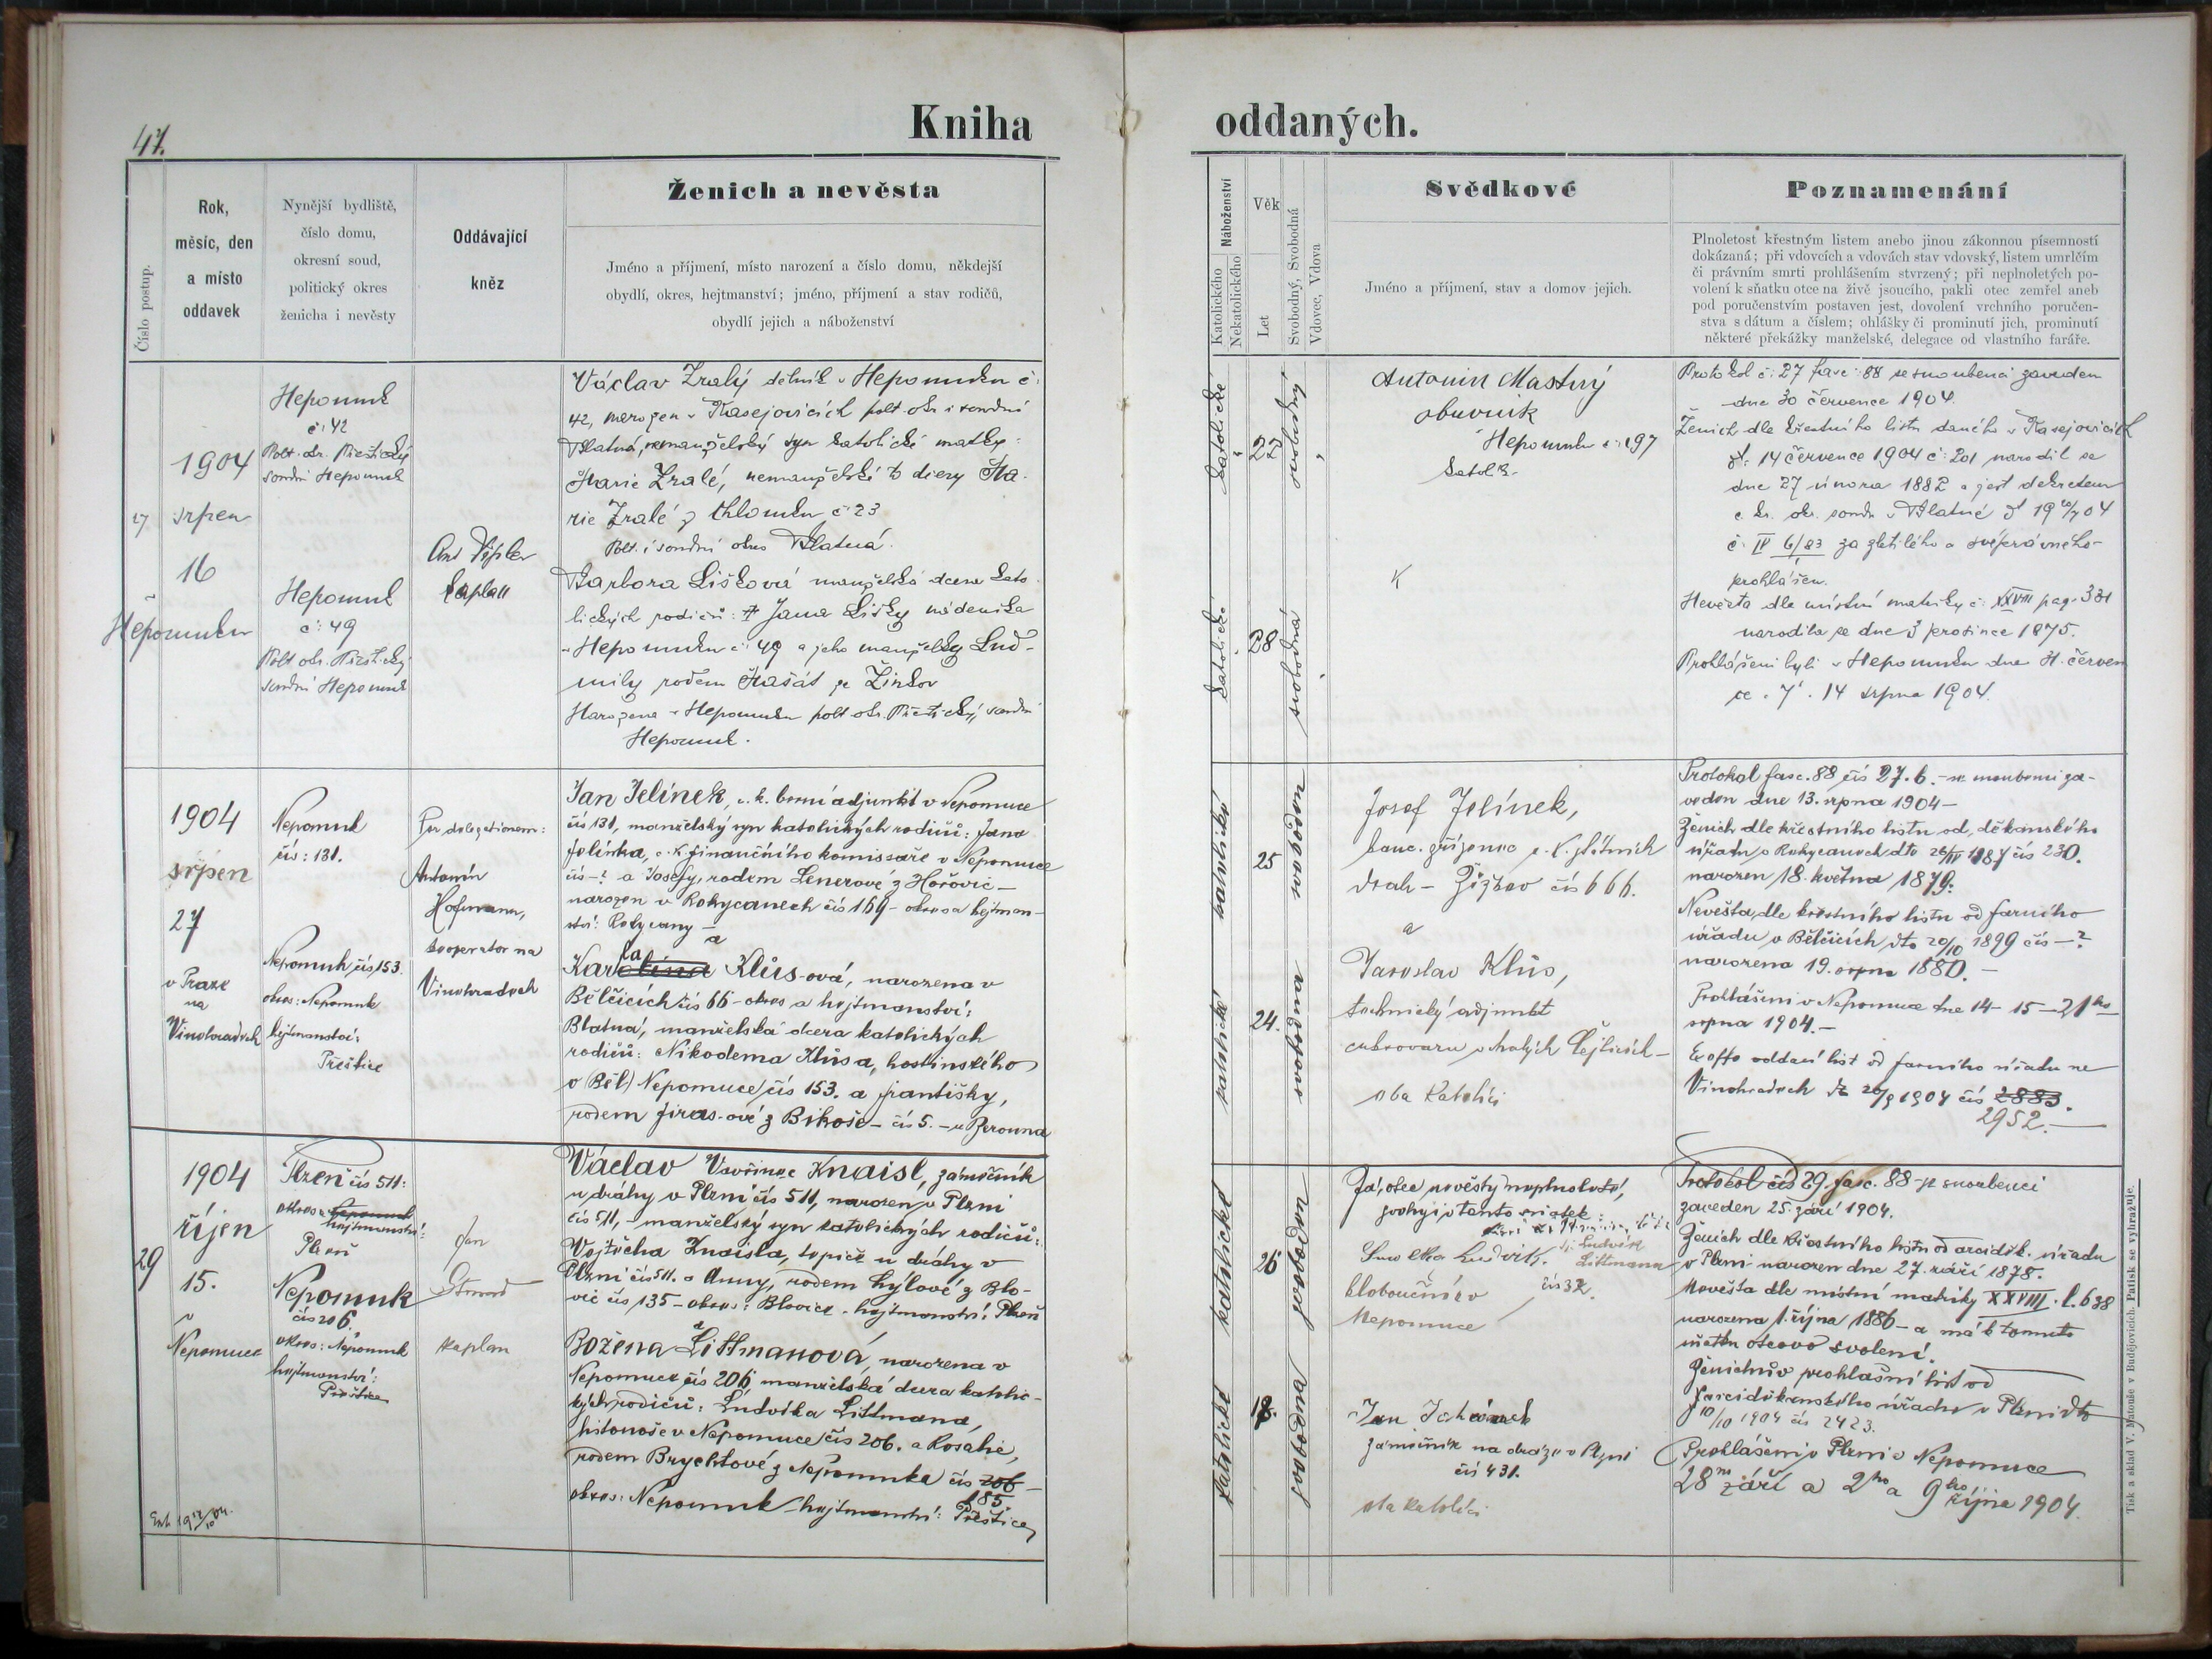 47.
Kniha oddaných.
Číslo postup.
Rok, měsíc, den a místo oddavek
Nynější bydliště, číslo domu, okresní soud, politický okres ženicha i nevěsty
Oddávající kněz
Ženich a nevěsta
Jméno a příjmení, místo narození a číslo domu, někdejší
obydlí, okres, hejtmanství; jméno, příjmení a stav rodičů,
obydlí jejich a náboženství
Náboženství
Katolického
Nekatolického
Věk
Let
Svobodný, Svobodná
Vdovec, Vdova
Svědkové
Jméno a příjmení, stav a domov jejich.
Poznamenání
Plnoletost křestným listem anebo jinou zákonnou písemností
dokázaná; při vdovcích a vdovách stav vdovský, listem umrlčím
či právním smrti prohlášením stvrzený; při neplnoletých po-
volení k sňatku otce na živě jsoucího, pakli otec zemřel aneb
pod poručenstvím postaven jest, dovolení vrchního poručen-
stva s dátum a číslem; ohlášky či prominutí jich, prominutí
některé překážky manželské, delegace od vlastního faráře.
27
1904
srpen
16
v
Nepomuku
Nepomuk
č: 42
Polt. okr. Přeštický
soudní Nepomuk
Nepomuk
č: 49
Polt okr. Přeštický
soudní Nepomuk
Ant
kaplan
Václav Zralý dělník v Nepomuku č:
42, narozen v Kasejovicích polt. okr. i soudní
Blatná, nemanželský syn katolické matky:
Marie Zralé, nemanželské dcery Ma-
rie Zralé z Chlomku č 23
Polt. i soudní okres Blatná.
Barbora Lišková manželská dcera kato-
lických rodičů: † Jana Lišky nádeníka
v Nepomuku č: 49 a jeho manželky Lud-
mily rodem Mašát ze Žinkov
Narozena v Nepomuku polt okr. Přeštický, soudní
Nepomuk.
katolické
svobodný
28
katolické
svobodná
Antonin Mastný
obuvník
Nepomuk č: 197
katolík
Protokol č: 27 fasc: 88 se snoubenci zaveden
dne 30 července 1904.
Ženich dle křestního listu daného v Kasejovicích
dt: 14 července 1904 č: 201 narodil se
dne 27 února 1882 a jest dekretem
c. k. okr. soudu v Blatné dt 19 20/7 04
č. IV 6/83 za zletilého a svéprávného
prohlášen.
Nevěsta dle místní matriky č: XXVII pag. 331
narodila se dne 3 prosince 1875.
Prohlášeni byli v Nepomuku dne 31. červen
ce. 7. 14 srpna 1904.
1904
srpen
27
v Praze
na
Vinohradech
Nepomuk
čís: 131.
Nepomuk čís 153.
okres: Nepomuk
hejtmanství:
Přeštice
Per delegationem:
Antonín
Hofmann,
kooperator na
Vinohradech
Jan Jelínek, c. k. berní adjunkt v Nepomuce
čís 131, manželský syn katolických rodičů: Jana
Jelínka, c. k. finančního komissaře v Nepomuce
čís -? a Josefy, rodem Lenerové z Hořovic -
narozen v Rokycanech čís 169 - okres a hejtman-
ství: Rokycany - a
Karolina la Klůs-ová, narozena v
Bělčicích čís 66 - okres a hejtmanství:
Blatná, manželská dcera katolických
rodičů: Nikodema Klůsa, hostinského
v (Běl) Nepomuce čís 153. a Františky,
rodem Jiras-ové z Bikoše - čís 5. - u Berouna
katolické
25
svoboden
katolické
24.
svobodna
Josef Jelínek,
kanc. zřízenec c. k. státních
drah - Žižkov čís 666.
a
Jaroslav Klůs,
technický adjunkt
cukrovaru v malých Čejticích -
oba katolíci
Protokol fasc. 88 čís 27. b. - se snoubenci za-
veden dne 13. srpna 1904 -
Ženich dle křestního listu od děkanského
úřadu v Rokycanech dto 26/IV 1887 čís 230.
narozen 18. května 1879.
Nevěsta, dle křestního listu od farního
úřadu v Bělčicích dto 20/10 1899 čís - ?
narozena 19. srpna 1880. -
Prohlášeni v Nepomuce dne 14 - 15 - 21 ho
srpna 1904. -
Ex offo oddací list od farního úřadu na
Vinohradech dto 20/9 1904 čís 2883.
2952. -
29
1904
říjen
15.
v
Nepomuce
Plzeň čís 511:
okres: Nepomuk
hejtmanství:
Plzeň
Nepomuk
čís 206.
okres: Nepomuk
hejtmanství:
Přeštice
Jan
kaplan
Václav Vavřinec Knaisl, zámečník
u dráhy v Plzni čís 511, narozen v Plzni
čís 511, - manželský syn katolických rodičů:
Vojtěcha Knaisla, topiče u dráhy v
Plzni čís 511. a Anny, rodem Hýlové z Blo-
vic čís 135 - okres: Blovice - hejtmanství: Plzeň
a
Božena Littmanová, narozena v
Nepomuce čís 206 manželská dcera katolic-
kých rodičů: Ludvíka Littmana,
listonoše v Nepomuce čís 206. a Rosalie,
rodem Brychtové z Nepomuka čís 206 -
185
okres: Nepomuk - hejtmanství: Přeštice
katolické
26
svoboden
katolické
18.
svobodna
Já, otec nevěsty neplnoleté,
svoluji v tento sňatek:
Ludvík
Littmann
čís 32.
kloboučník v
Nepomuce
Jan
zámečník na dráze v Plzni
čís 431.
oba katolíci
Protokol čís 29 fasc. 88 se snoubenci
zaveden 25. září 1904.
Ženich dle křestního listu od arciděk. úřadu
v Plzni narozen dne 27. září 1878.
Nevěsta dle místní matriky XXVIII. l. 638
narozena 1. října 1886 - a má k tomuto
sňatku otcovo svolení.
Ženichův prohlašní list od
arciděkanského úřadu v Plzni dto
10/10 1904 čís 2423.
Prohlášeni v Plzni a Nepomuce
28 září a 2ho a 9ho října 1904.
Tisk a sklad V. Matouše v Budějovicích. Patisk se vyhražuje.